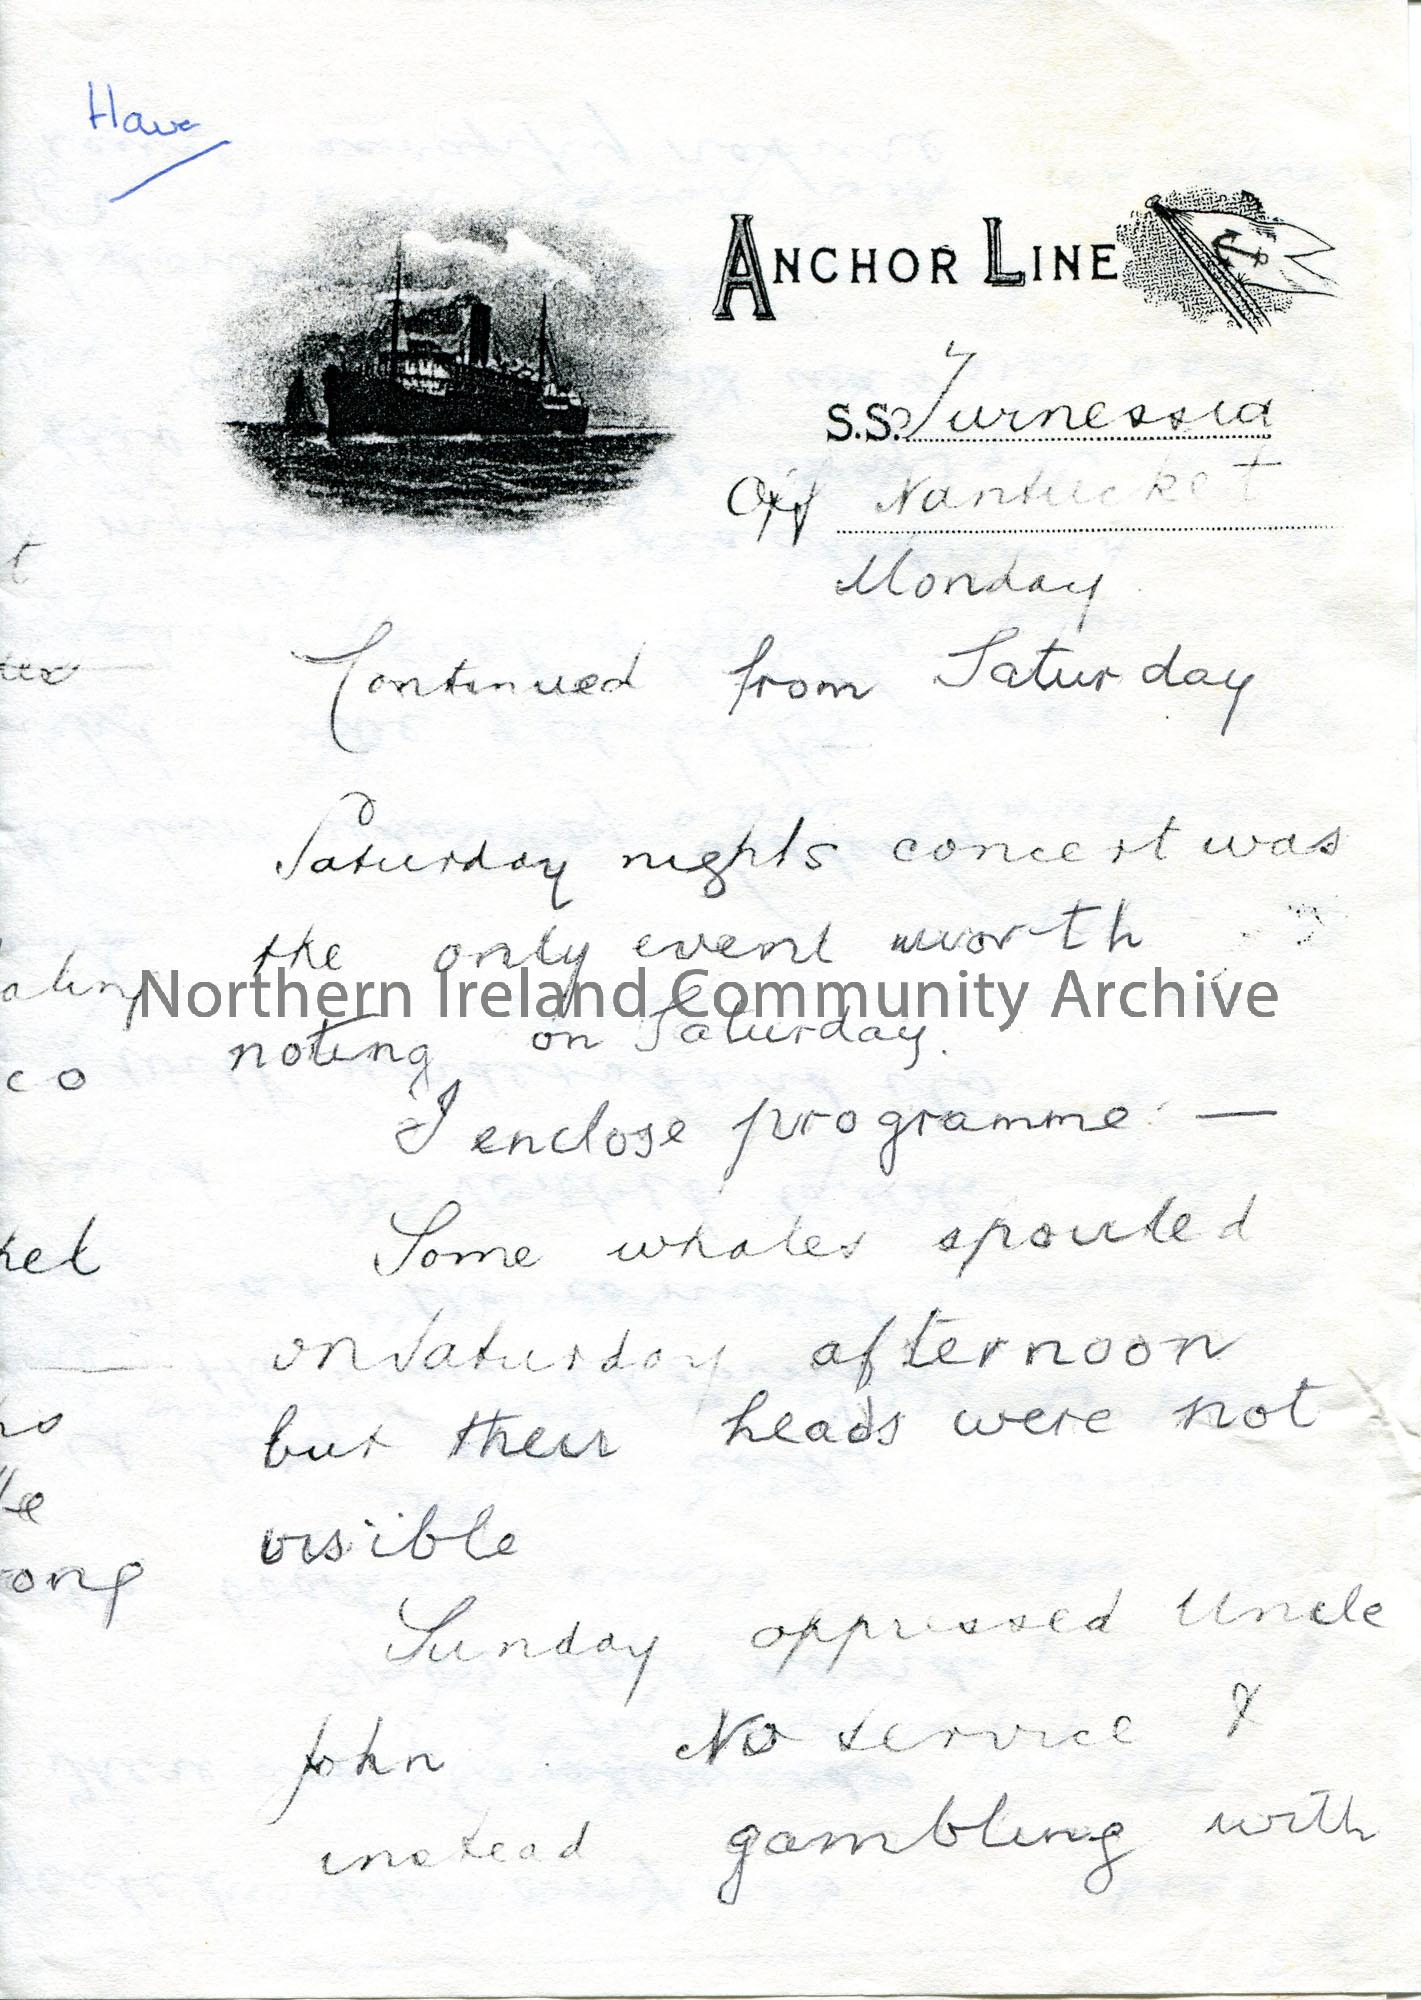 Have
ANCHOR LINE
S.S. Furnessia
Off Nantucket
Monday
Continued from Saturday
Saturday nights concert was
the only event worth
noting on Saturday.
I enclose programme: —
Some whales spouted
on Saturday afternoon
but their heads were not
visible
Sunday oppressed Uncle
John. No service &
instead gambling with
Northern Ireland Community Archive